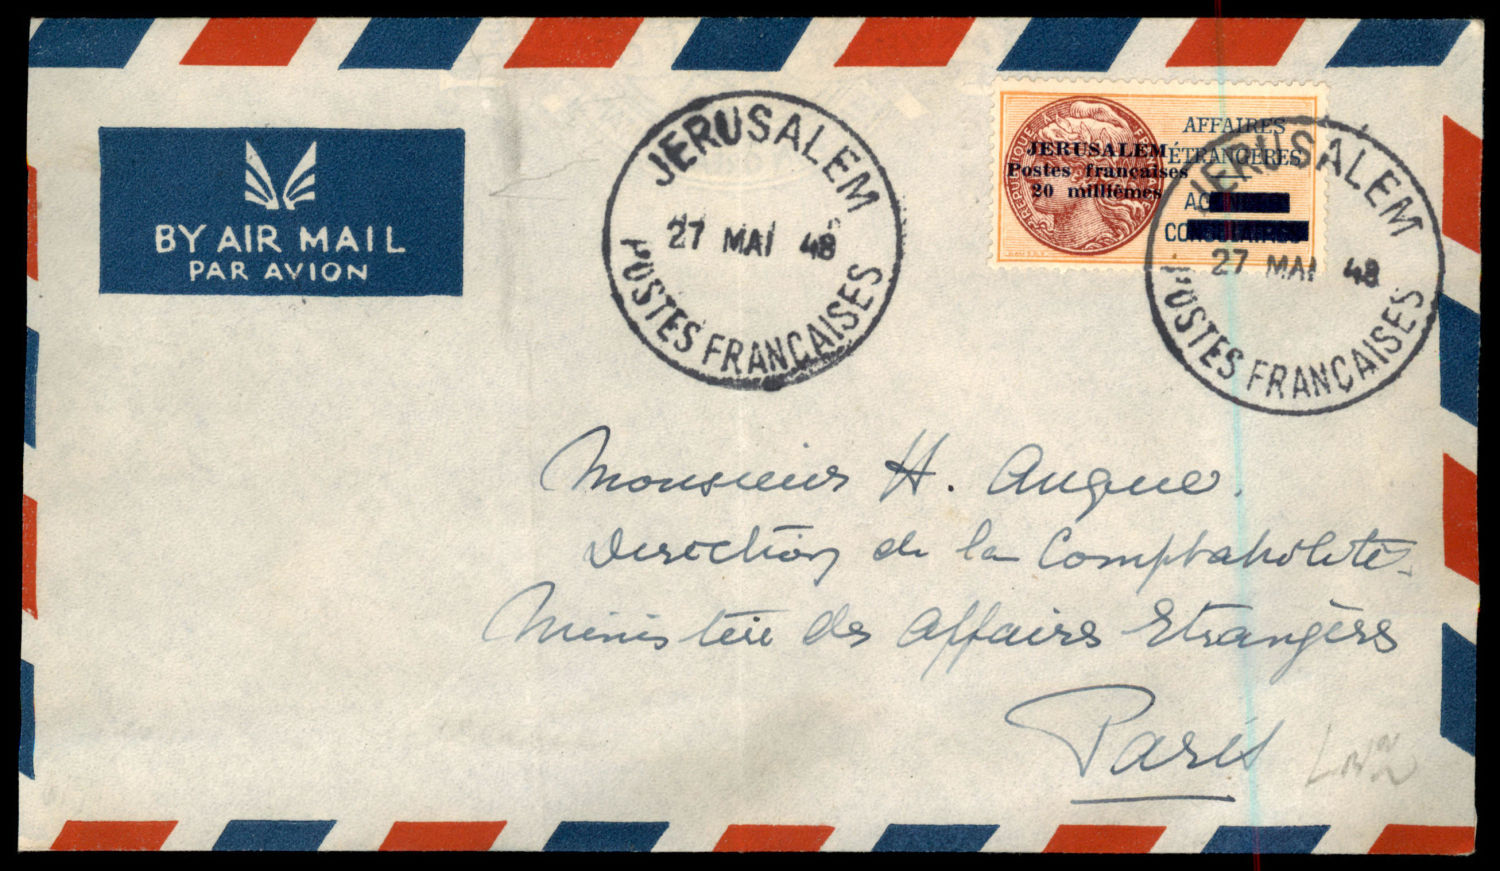 BY AIR MAIL
PAR AVION
JERUSALEM
27 MAI 48
POSTES FRANÇAISES
AFFAIRES
ÉTRANGÈRES
JERUSALEM
Postes françaises
20 millièmes
JERUSALEM
27 MAI 48
POSTES FRANÇAISES
Monsieur H. Augue.
Direction de la Comptabilité
Ministère des Affaires Etrangères
Paris